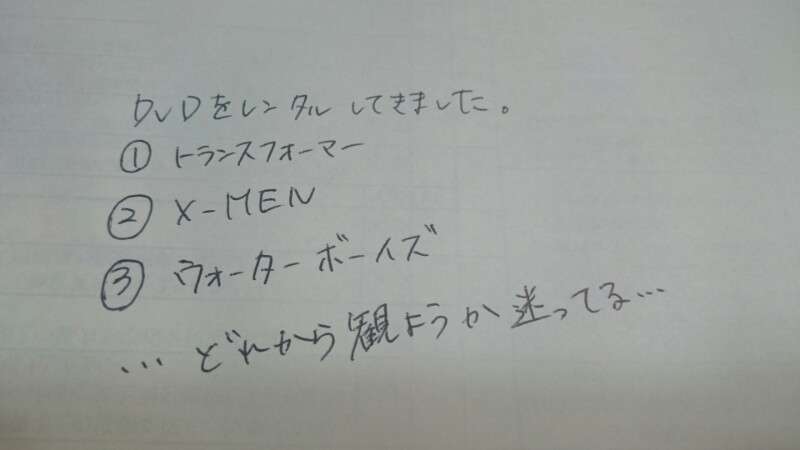 DVDをレンタルしてきました。
① トランスフォーマー
② X-MEN
③ ウォーターボーイズ
… どれから観ようか迷ってる…